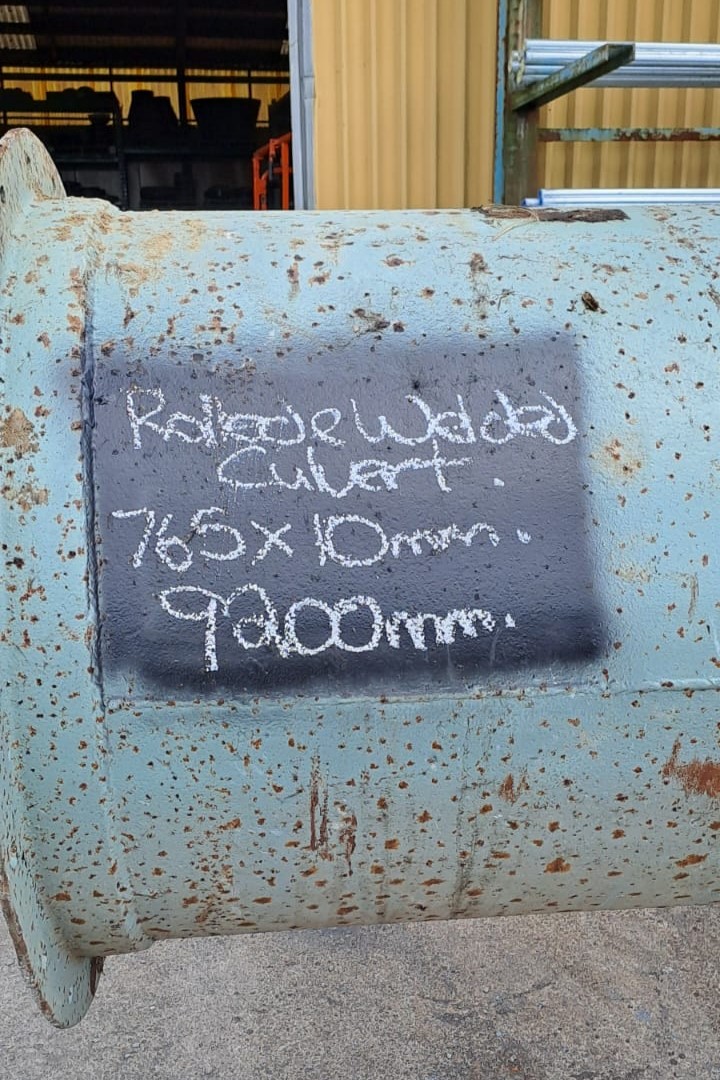 Rolled & Welded
Culvert.
765 x 10mm.
9200mm.